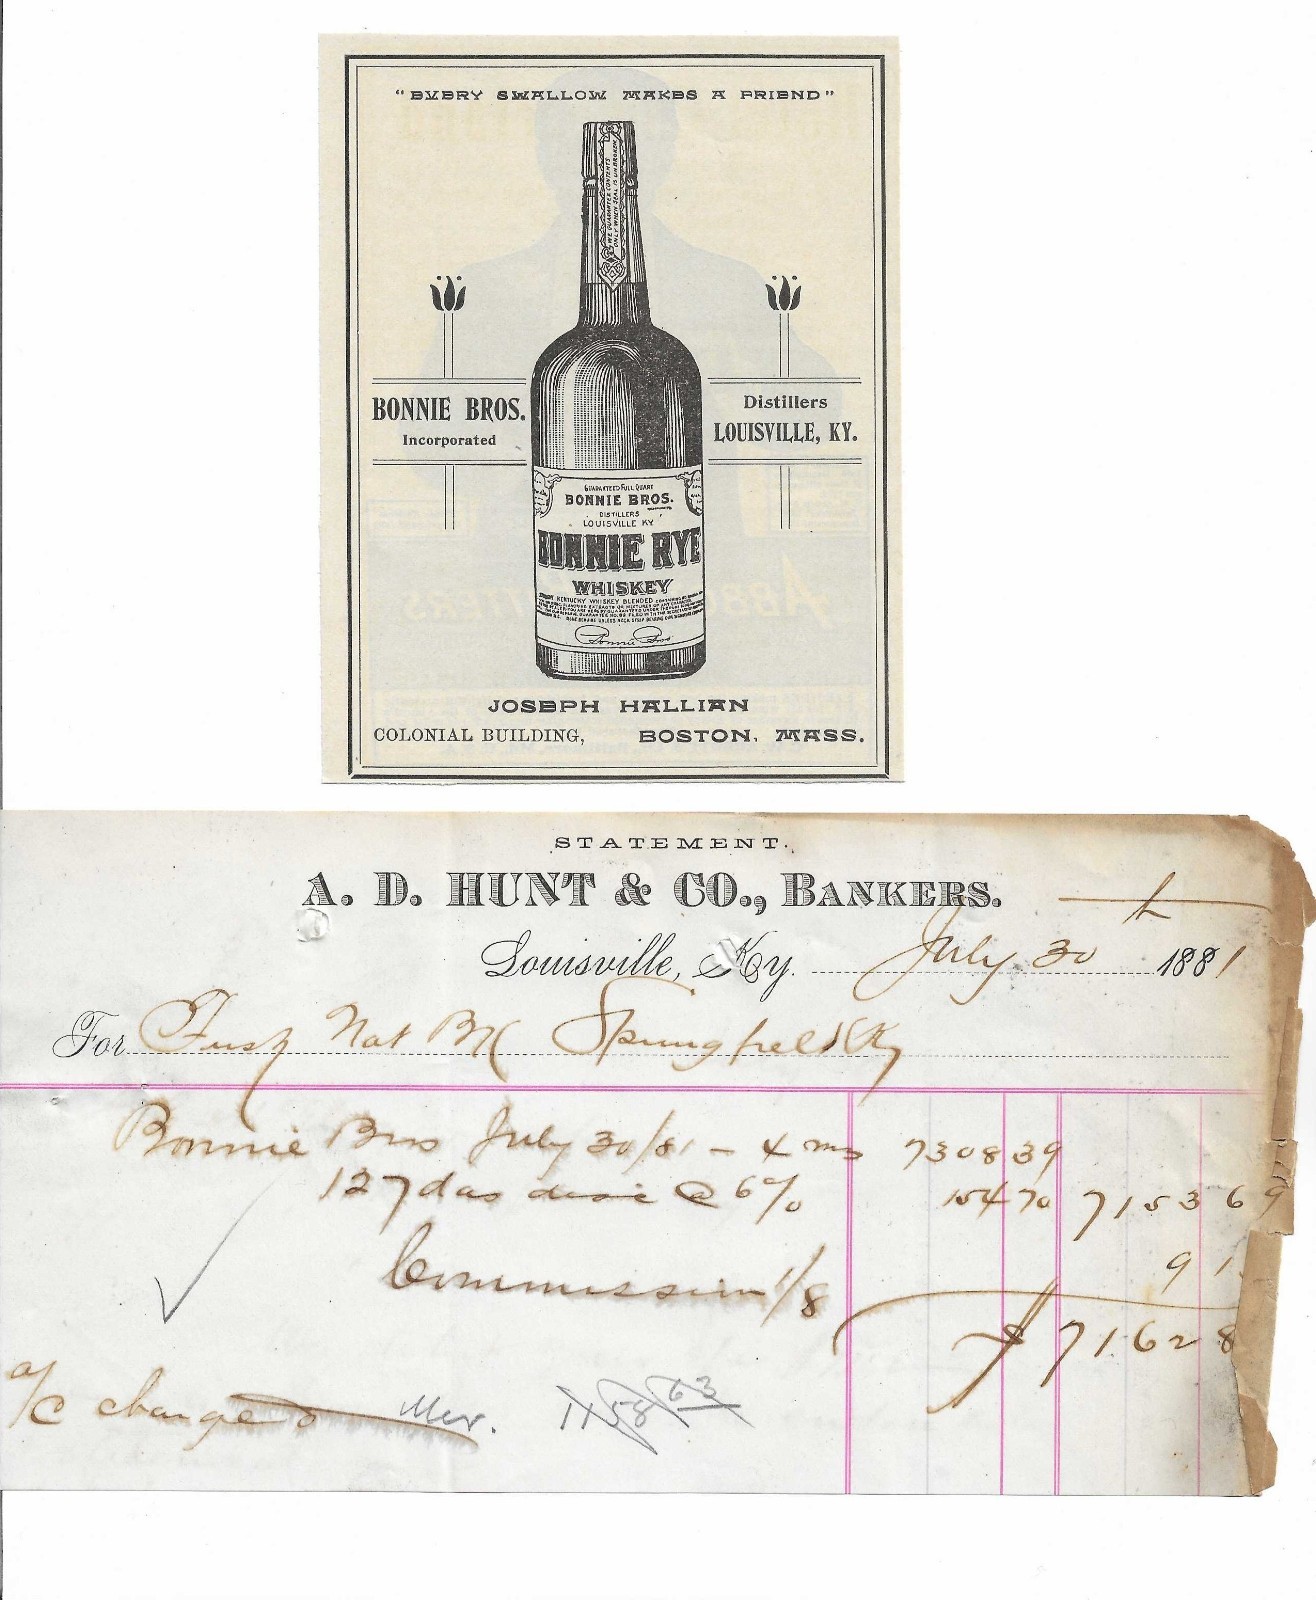 "EVERY SWALLOW MAKES A FRIEND"
WE GUARANTEE CONTENTS
ONLY WHEN SEAL IS UNBROKEN
BONNIE BROS.
Incorporated
Distillers
LOUISVILLE, KY.
GUARANTEED FULL QUART
BONNIE BROS.
DISTILLERS
LOUISVILLE KY
BONNIE RYE
WHISKEY
Bonnie Bros
JOSEPH HALLIAN
COLONIAL BUILDING, BOSTON, MASS.
STATEMENT.
A. D. HUNT & CO., BANKERS.
Louisville, Ky. July 30th 1881
For First Nat Bk Springfield Ky
Bonnie Bros July 30/81 - 4 ms 7308 39
127 das disc @ 6% 154 70 7153 69
Commission 1/8 9 1
$ 7162 8
a/c charged